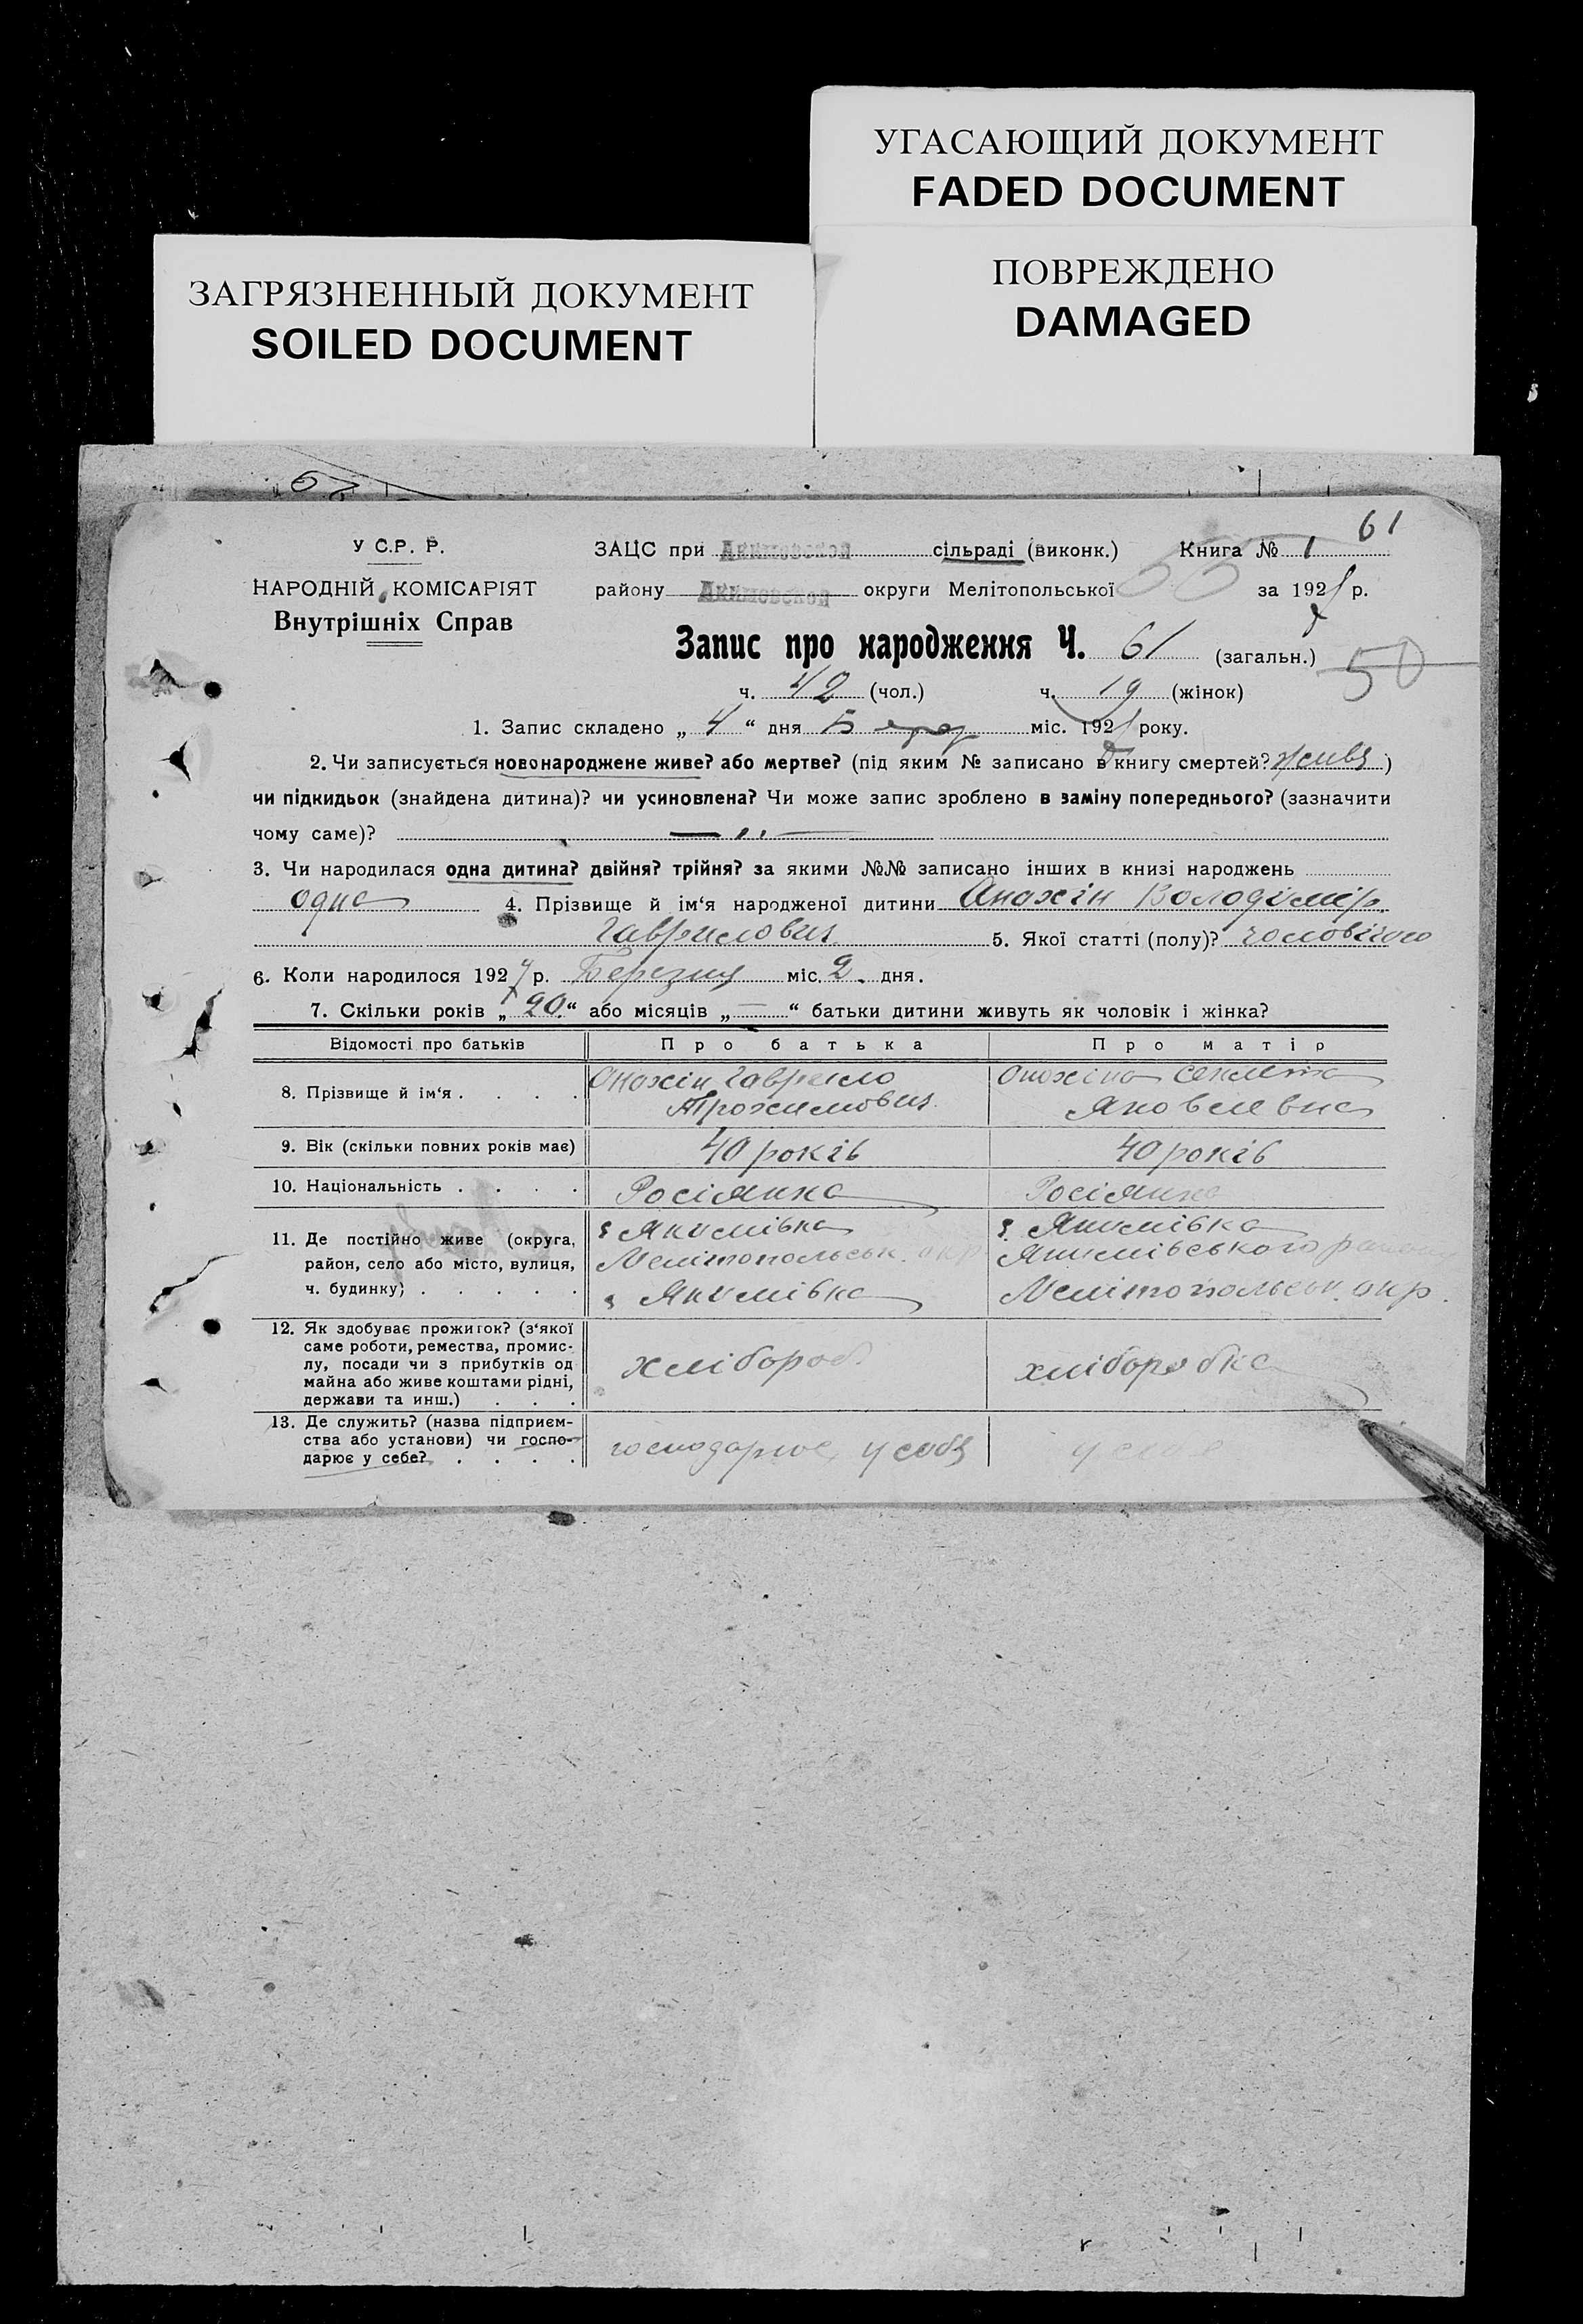 УГАСАЮЩИЙ ДОКУМЕНТ
FADED DOCUMENT
ПОВРЕЖДЕНО
DAMAGED
ЗАГРЯЗНЕННЫЙ ДОКУМЕНТ
SOILED DOCUMENT
61
У С.Р. Р.
ЗАЦС при Акимовской сільраді (виконк.) Книга № 1
НАРОДНІЙ КОМІСАРІЯТ
району Акимовской округи Мелітопольської за 192 р.
Внутрішніх Справ
Запис про народження Ч. 61 (загальн.)
50
ч. 42 (чол.) ч. 19 (жінок)
1. Запис складено „ 4 “ дня міс. 192 року.
2. Чи записується новонароджене живе? або мертве? (під яким № записано в книгу смертей? живе)
чи підкидьок (знайдена дитина)? чи усиновлена? Чи може запис зроблено в заміну попереднього? (зазначити
чому саме)? — „ —
3. Чи народилася одна дитина? двійня? трійня? за якими №№ записано інших в книзі народжень
одна 4. Прізвище й ім‘я народженої дитини Анохін Володімір
Гаврилович 5. Якої статті (полу)? чоловічого
6. Коли народилося 192 р. Березня міс. 2 дня.
7. Скільки років „ 20 “ або місяців „ — “ батьки дитини живуть як чоловік і жінка?
Відомості про батьків Про батька Про матір
8. Прізвище й ім‘я . . . . Анохін Гаврило Анохіна
Трохимович Яковлевна
9. Вік (скільки повних років має) 40 років 40 років
10. Національність . . . . Росіянка Росіянка
11. Де постійно живе (округа, с Якимівка с. Якимівка
район, село або місто, вулиця, Мелітопольськ. окр Якимівського району
ч. будинку) . . . . . с Якимівка Мелітопольськ. окр.
12. Як здобуває прожиток? (з‘якої
саме роботи, ремества, промис-
лу, посади чи з прибутків од хлібороб хліборобка
майна або живе коштами рідні,
держави та инш.) . . .
13. Де служить? (назва підприєм-
ства або установи) чи госпо- господарює у себе у себе
дарює у себе? . . . .